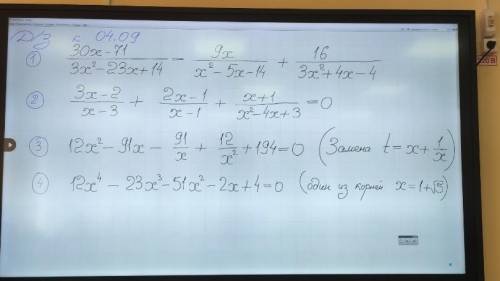 Д/З к 04.09
① (30x-71)/(3x²-23x+14) - 9x/(x²-5x-14) + 16/(3x²+4x-4)
② (3x-2)/(x-3) + (2x-1)/(x-1) + (x+1)/(x²-4x+3) = 0
③ 12x² - 91x - 91/x + 12/x² + 194 = 0 (Замена t = x + 1/x)
④ 12x⁴ - 23x³ - 51x² - 2x + 4 = 0 (один из корней x = 1+√5)